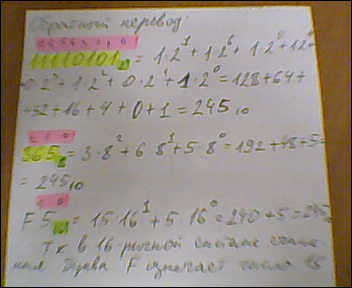 Обратный перевод:
7 6 5 4 3 2 1 0
11110101₂ = 1·2⁷ + 1·2⁶ + 1·2⁵ + 1·2⁴ +
+0·2³ + 1·2² + 0·2¹ + 1·2⁰ = 128 + 64 +
+32 + 16 + 4 + 0 + 1 = 245₁₀
2 1 0
365₈ = 3·8² + 6·8¹ + 5·8⁰ = 192 + 48 + 5 =
= 245₁₀
1 0
F5₁₆ = 15·16¹ + 5·16⁰ = 240 + 5 = 245
т.к в 16-ричной системе счисле
ния буква F означает число 15